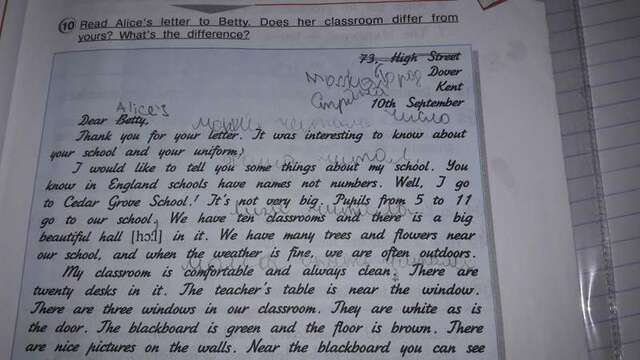 10 Read Alice's letter to Betty. Does her classroom differ from
yours? What's the difference?
73, High Street
Dover
Kent
10th September
Alice's
Dear Betty,
Thank you for your letter. It was interesting to know about
your school and your uniform.
I would like to tell you some things about my school. You
know in England schools have names not numbers. Well, I go
to Cedar Grove School. It's not very big. Pupils from 5 to 11
go to our school. We have ten classrooms and there is a big
beautiful hall [hɔ:l] in it. We have many trees and flowers near
our school, and when the weather is fine, we are often outdoors.
My classroom is comfortable and always clean. There are
twenty desks in it. The teacher's table is near the window.
There are three windows in our classroom. They are white as is
the door. The blackboard is green and the floor is brown. There
are nice pictures on the walls. Near the blackboard you can see